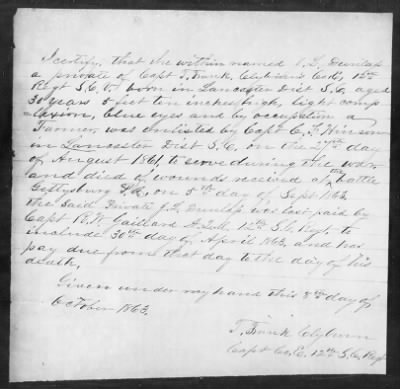 I certify, that the within named J. L. Dunlap
a private of Capt T. Frank. Clyburn's Co E, 12th
Regt S. C. V. born in Lancaster Dist S. C. aged
30 years 5 feet ten inches high, light comp
-lexion, blue eyes and by occupation a
Farmer, was enlisted by Capt C. F. Hinson
in Lancaster Dist S. C. on the 27th day
of August 1861, to serve during the war
and died of wounds received at the battle
Gettysburg Pa, on 5th day of Sept 1863
the said Private J. L. Dunlap was last paid by
Capt R. W. Gaillard A. Q. M. 12th S. C. Regt to
include 30th day of April 1863, and has
pay due from that day to the day of his
death,
Given under my hand this 8th day of
October 1863.
T. Frank Clyburn
Capt Co. E. 12th S. C. Regt